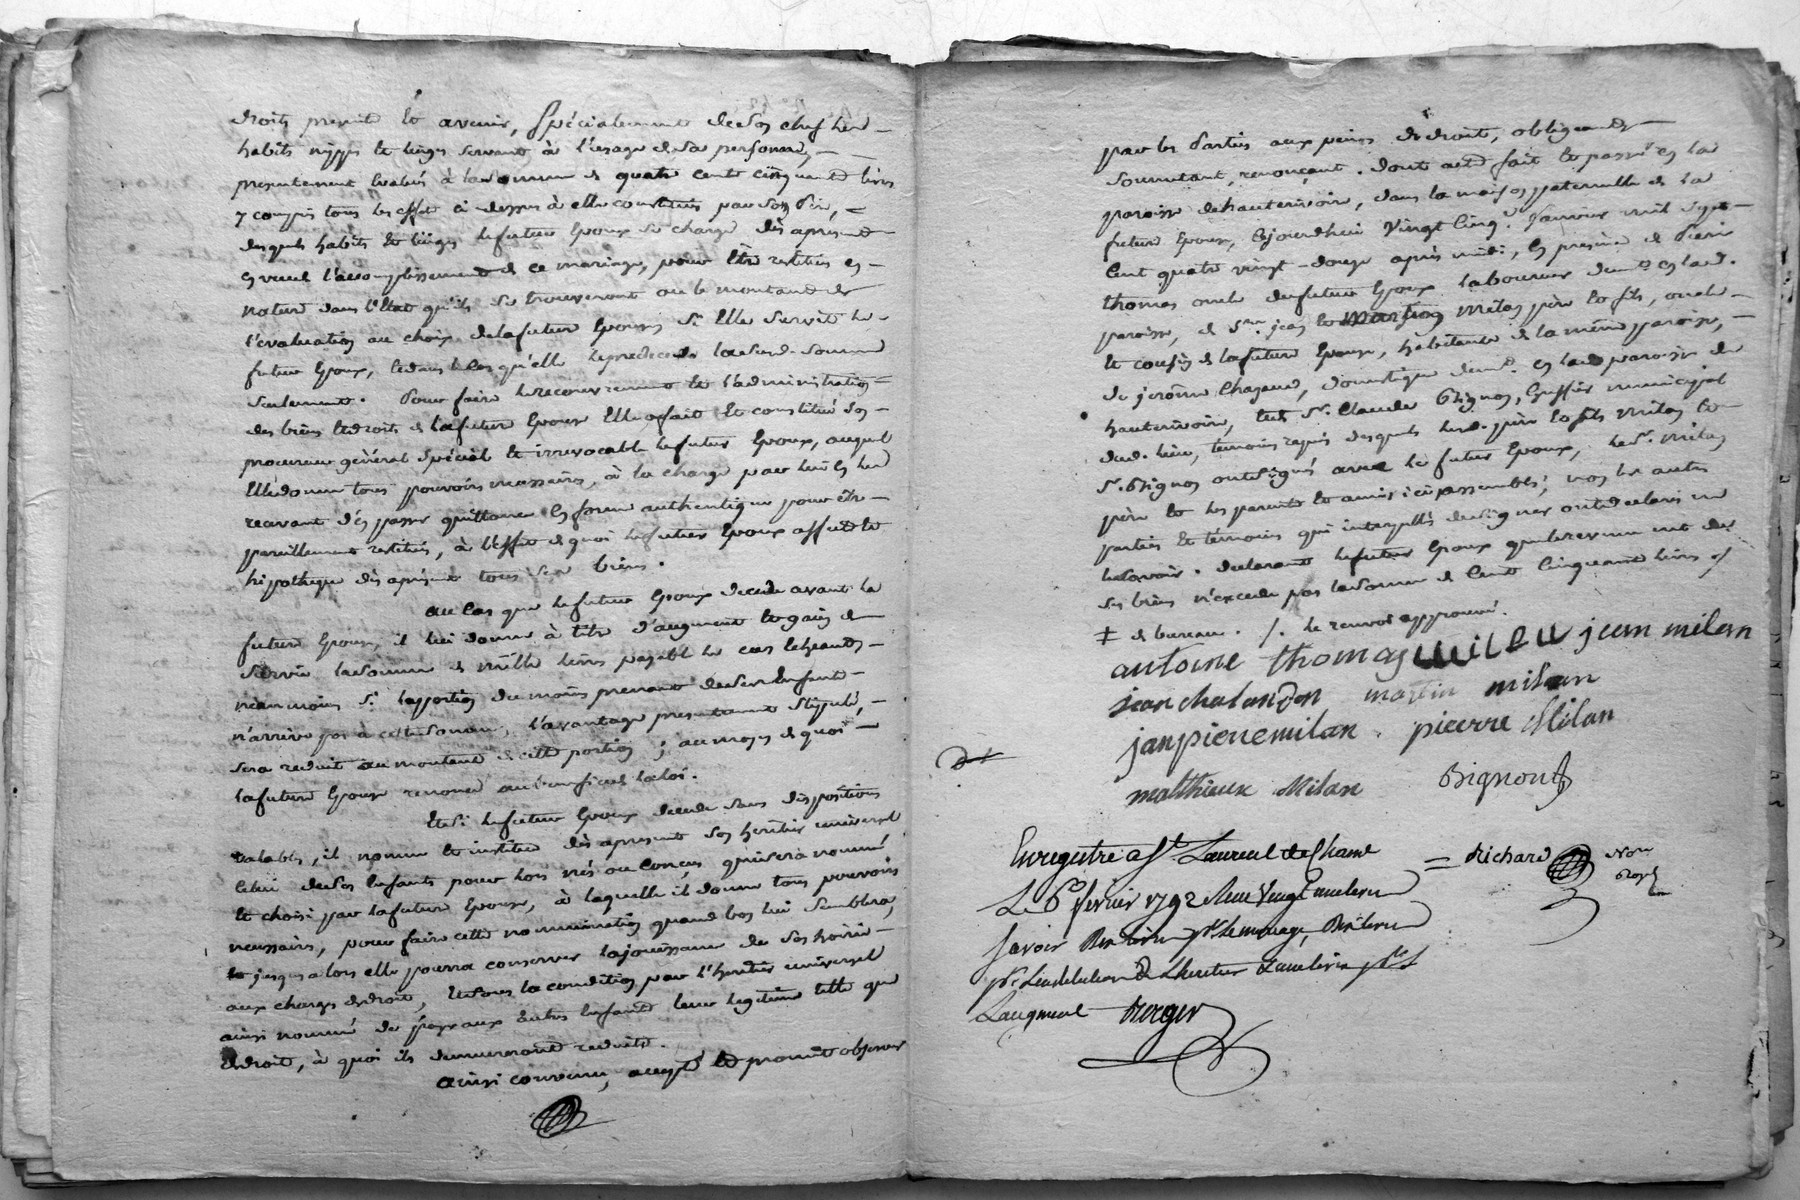 droits present et avenir, spécialement de son chef les
habits nippes et linges servant à l'usage de sa personne,
presentement évalués à la somme de quatre cents cinquante livres
y compris tous les effets ci dessus à elle constitués par son père,
desquels habits et linges le futur Epoux se charge dès apresent
en vue l'accomplissement de ce mariage, pour être restitués en
nature dans l'état qu'ils se trouveront ou le montant de
l'evaluation au choix de la future Epouse si elle survit le
futur Epoux, et dans le cas qu'elle le predecede la susd. somme
seulement. Pour faire le recouvrement et l'administration
des biens et droits de la future Epouse elle a fait et constitué son
procureur général spécial et irrevocable le futur Epoux, auquel
elle donne tous pouvoirs necessaires, à la charge par lui en les
recevant d'en passer quittance en forme authentique pour être
pareillement restitués, à l'effet de quoi le futur Epoux affecte et
hipotheque dès apresent tous ses biens.
au cas que le futur Epoux decede avant la
future Epouse, il lui donne à titre d'augment et gain de
survie la somme de mille livres payable le cas echeant,
néanmoins si la portion du moins prenant de ses enfants
n'arrive pas à cette somme, l'avantage presentement stipulé,
sera reduit au montant de cette portion; au moyen de quoi
la future Epouse renonce au benefice de la loi.
Et si le futur Epoux decede sans dispositions
valables, il nomme et institue dès apresent son heritier universel
celui de ses enfants pour lors nés ou conçus qui sera nommé
et choisi par la future Epouse, à laquelle il donne tous pouvoirs
necessaires, pour faire cette nomination quand bon lui semblera,
et jusques alors elle pourra conserver la jouissance de son hoirie
aux charges de droit, et sous la condition par l'heritier universel
ainsi nommé de payer aux autres enfants leur legitime telle que
de droit, à quoi ils demeureront reduits.
ainsi convenu, accepté et promis observer
par les Parties aux peines de droit, obligeants
soumettant, renonçant. Dont acte fait et passé en la
paroisse de hauterivoire, dans la maison paternelle de la
future Epouse, aujourdhui vingt cinq Janvier mil sept
cent quatre vingt-douze après midi, en presence de Pierre
thomas oncle du futur Epoux laboureur demt. en lad.
paroisse, de Sr. jean et martin milan père et fils, oncle
et cousin de la future Epouse, habitants de la même paroisse,
de jerôme Chazaud, domestique demt. en lad. paroisse de
hauterivoire, et Sr. Claude Bignon, Greffier municipal
dud. lieu, temoins requis desquels lesd. père et fils milan et
Sr. Bignon ont signés avec le futur Epoux, le Sr. milan
père et les parents et amis ici assemblés; non les autres
parties et témoins qui interpellés de signer ont déclarés ne
le savoir. declarant le futur Epoux que le revenu net de
ses biens n'excede pas la somme de cent cinquante livres /
‡ de bureau. /. le renvoi approuvé.
antoine thomas milan jean milan
jean chalandon martin milan
janpierre milan. pierre Milan
matthieux Milan Bignon
Enregistré a St. Laurent de Chame = Richard Nore
Le 6 fevrier 1792
Savoir
Laugment Berger